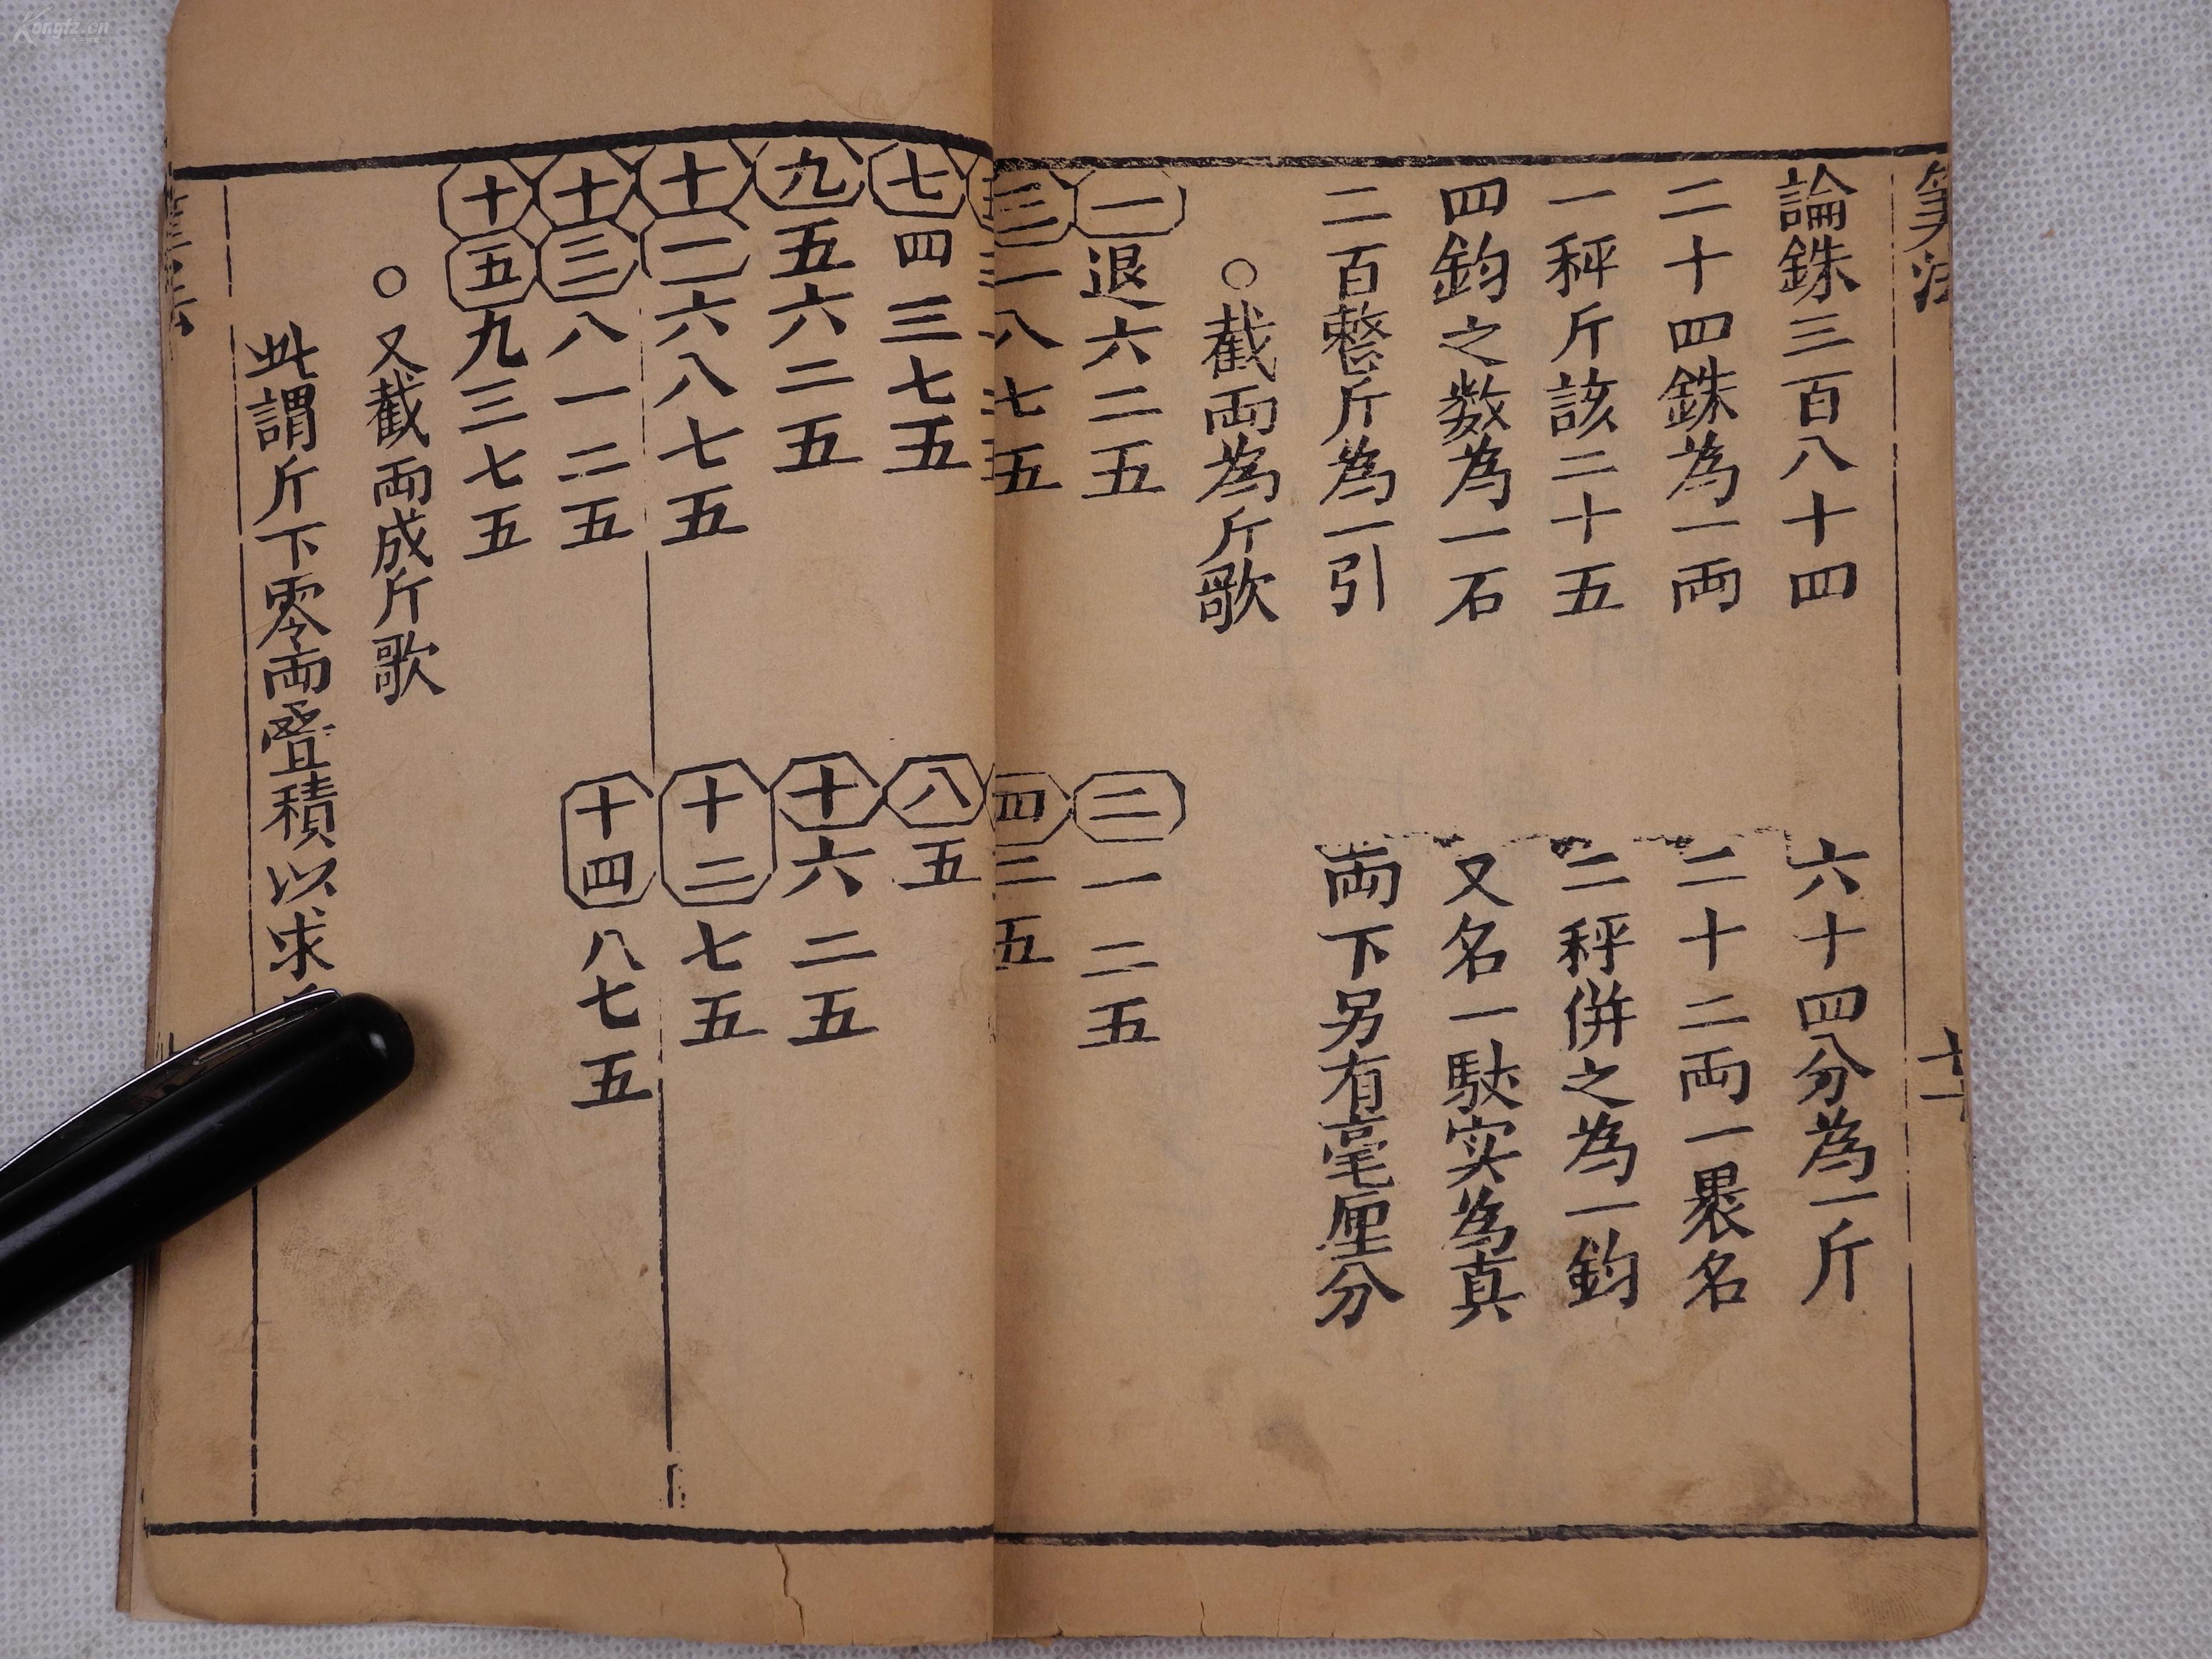 論銖三百八十四
六十四分為一斤
二十四銖為一両
二十二両一褁名
一秤斤該二十五
二秤併之為一鈞
四鈞之数為一石
又名一馱实為真
二百整斤為一引
両下另有毫厘分
○截両為斤歌
一退六二五
二一二五
三一八七五
四二五
七四三七五
八五
九五六二五
十六二五
十一六八七五
十二七五
十三八一二五
十四八七五
十五九三七五
○又截両成斤歌
此謂斤下零両疊積以求
Kongfz.cn